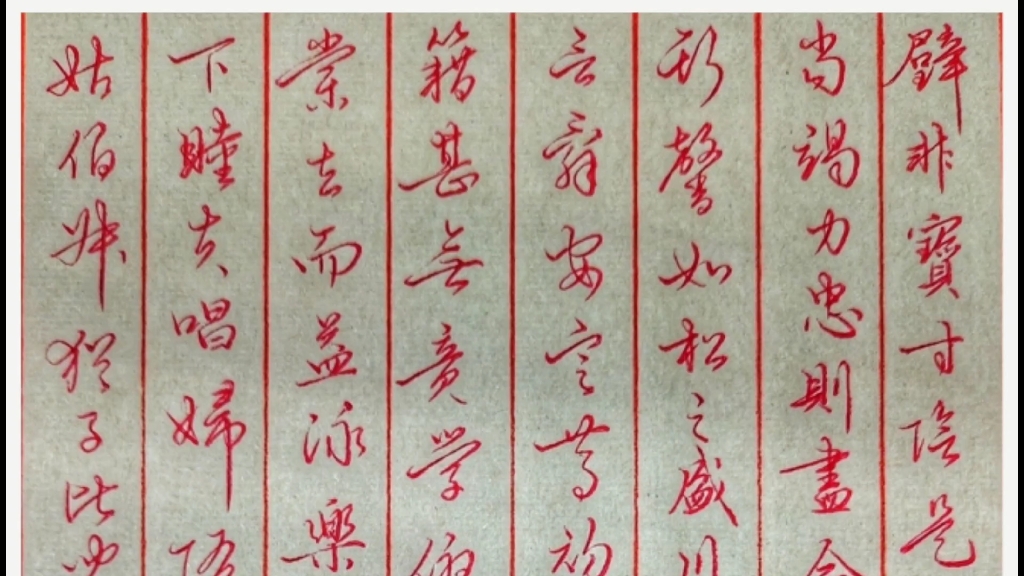 璧非寶寸陰是
當竭力忠則盡命
斯馨如松之盛川
言辭安定篤初
籍甚無竟学優
棠去而益詠樂
下睦夫唱婦隨
姑伯叔猶子比兒